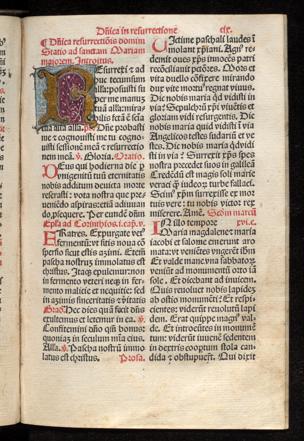 Dñica in resurrectione clx.
Dñica resurrectionis domini
Statio ad sanctam Mariam
maiorem. Introitus.
Resurrexi et ad
huc tecum sum
alla: posuisti su
per me manum
tuā alla: mira
bilis facta ē sciē
tia tua alla alla. ps. Dñe probasti
me et cognouisti me: tu cogno
uisti sessionē meā et resurrectio
nem meā. v. Gloria. Oratio.
Deus qui hodierna die p
vnigenitū tuū eternitatis
nobis aditum deuicta morte
reserasti: vota nostra que pre
ueniēdo aspiras: etiā adiuuan
do prosequere. Per eundē dñm
Epľa ad Corinthios. i. cap. v.
Fratres. Expurgate vetꝰ
fermentū: vt sitis noua cō
spersio sicut estis azimi. Etem̄
pascha nostrum immolatus est
christus. Itaqꝫ epulemur: non
in fermento veteri neqꝫ in fer-
mento malicie et nequicie: sed
in azimis sinceritatis et v̄itatis
Grad. Hec dies quā fecit dn̄s
exultemus et letemur in ea. v.
Confitemini dño qm̄ bonus:
quoniaꝫ in seculum mīa eius.
Alľa. v. Pascha nostrū immo
latus est christus. Prosa.
Victime paschali laudes ī
molant xp̄iani. Agnꝰ re-
demit oues xp̄s innocēs patri
recōsiliauit petōres. Mors et
vita duello cōflixere mirando
dux vite mortuꝰ regnat viuus.
Dic nobis maria qd vidisti in
via: Sepulchrū xp̄i viuētis et
gloriam vidi resurgentis. Dic
nobis maria quid vidisti ī via
Angelicos testes sudariū et ve-
stes. Dic nobis maria qd vidi
sti in via: Surrexit xp̄s spes
nostra precedet suos in galileā
Credendū est magis soli marie
veraci q̄ iudeoꝝ turbe fallaci.
Scimꝰ xp̄m surrexisse ex mor
tuis vere: tu nobis victor rex
miserere. Amē. Scdm marcū
In illo tempore xvi. c.
Maria magdalene et maria
iacobi et salome emerunt aro
mata: vt veniētes vngerēt ihm
Et valde mane vna sabbatoꝝ
veniūt ad monumentū orto iā
sole. Et dicebant ad inuicem.
Quis reuoluet nobis lapidem
ab ostio monumēti: Et respi-
cientes: viderūt reuolutū lapi
dem. Erat quippe magnꝰ val
de. Et introeūtes in monumē
tum: viderūt iuuenē sedentem
in dextris coopertum stola can
dida et obstupuerūt. Qui dixit